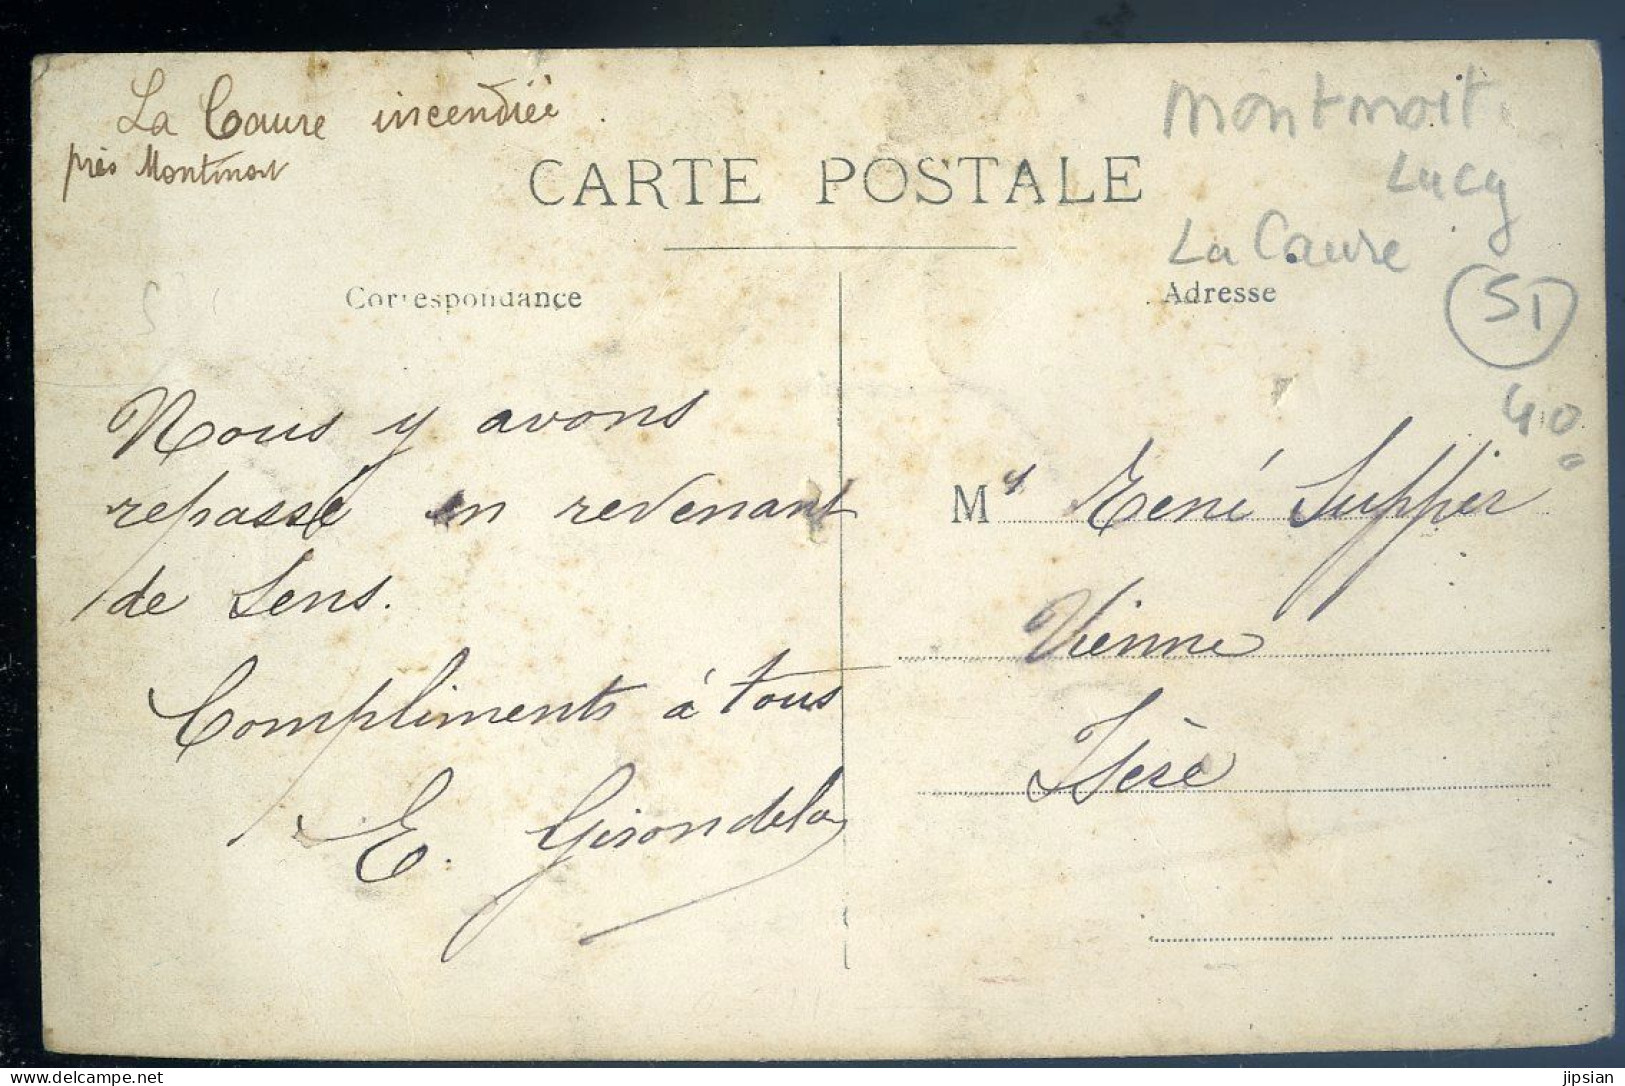 La Caure incendiée
près Montmort
CARTE POSTALE
Montmort.
Lucy
La Caure
Correspondance
Adresse
51
40
Nous y avons
repassé en revenant
de Sens.
Compliments à tous
E. Girondelo
Mr René Suppier
Vienne
Isère
delcampe.net
jipsian